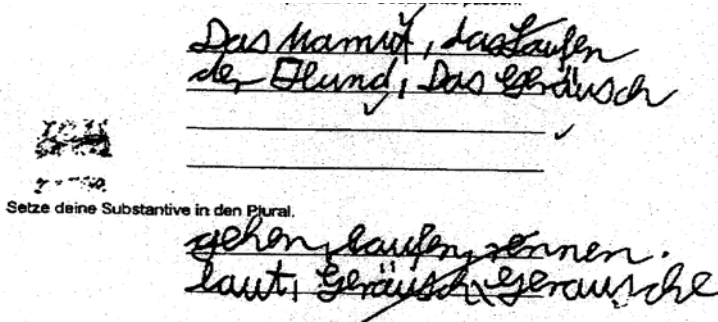 Das Mamut, das Laufen
der Hund, Das Geräusch
Setze deine Substantive in den Plural.
gehen, laufen, rennen.
laut, Geräusch, Geräusche